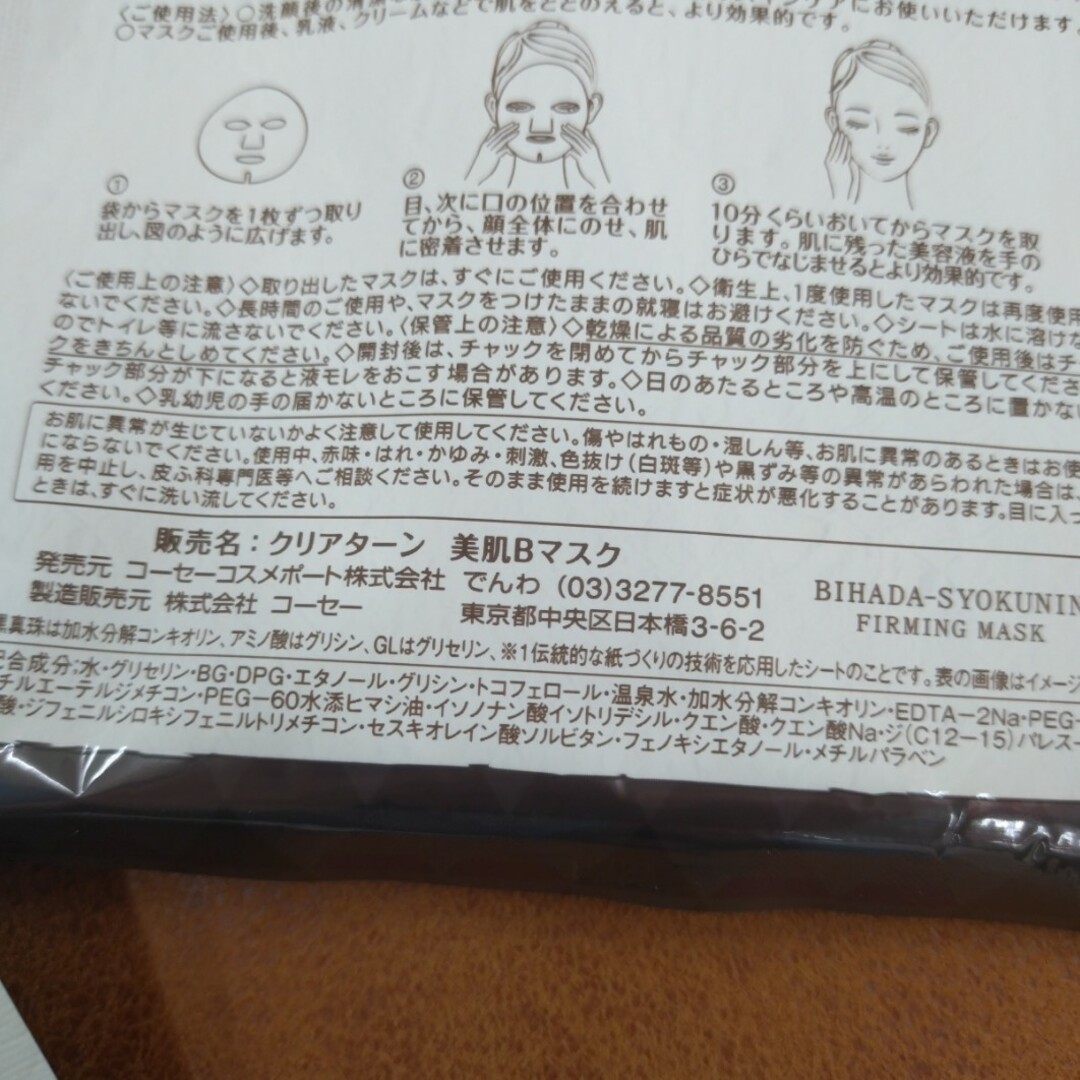 〈ご使用法〉○洗顔後の清潔
にお使いいただけます。
○マスクご使用後、乳液、クリームなどで肌をととのえると、より効果的です。
①
袋からマスクを1枚ずつ取り
出し、図のように広げます。
②
目、次に口の位置を合わせ
てから、顔全体にのせ、肌
に密着させます。
③
10分くらいおいてからマスクを取
ります。肌に残った美容液を手の
ひらでなじませるとより効果的です。
〈ご使用上の注意〉◇取り出したマスクは、すぐにご使用ください。◇衛生上、1度使用したマスクは再度使用
ないでください。◇長時間のご使用や、マスクをつけたままの就寝はお避けください。◇シートは水に溶けな
のでトイレ等に流さないでください。〈保管上の注意〉◇乾燥による品質の劣化を防ぐため、ご使用後はチ
クをきちんとしめてください。◇開封後は、チャックを閉めてからチャック部分を上にして保管してくださ
チャック部分が下になると液モレをおこす場合があります。◇日のあたるところや高温のところに置かない
ください。◇乳幼児の手の届かないところに保管してください。
お肌に異常が生じていないかよく注意して使用してください。傷やはれもの・湿しん等、お肌に異常のあるときはお使
にならないでください。使用中、赤味・はれ・かゆみ・刺激、色抜け(白斑等)や黒ずみ等の異常があらわれた場合は、
用を中止し、皮ふ科専門医等へご相談ください。そのまま使用を続けますと症状が悪化することがあります。目に入っ
ときは、すぐに洗い流してください。
販売名：クリアターン 美肌Bマスク
発売元 コーセーコスメポート株式会社 でんわ (03)3277-8551
製造販売元 株式会社 コーセー 東京都中央区日本橋3-6-2
BIHADA-SYOKUNIN
FIRMING MASK
黒真珠は加水分解コンキオリン、アミノ酸はグリシン、GLはグリセリン、※1伝統的な紙づくりの技術を応用したシートのことです。表の画像はイメージ
配合成分:水・グリセリン・BG・DPG・エタノール・グリシン・トコフェロール・温泉水・加水分解コンキオリン・EDTA-2Na・PEG-
チルエーテルジメチコン・PEG-60水添ヒマシ油・イソノナン酸イソトリデシル・クエン酸・クエン酸Na・ジ(C12-15)パレス-
酸・ジフェニルシロキシフェニルトリメチコン・セスキオレイン酸ソルビタン・フェノキシエタノール・メチルパラベン